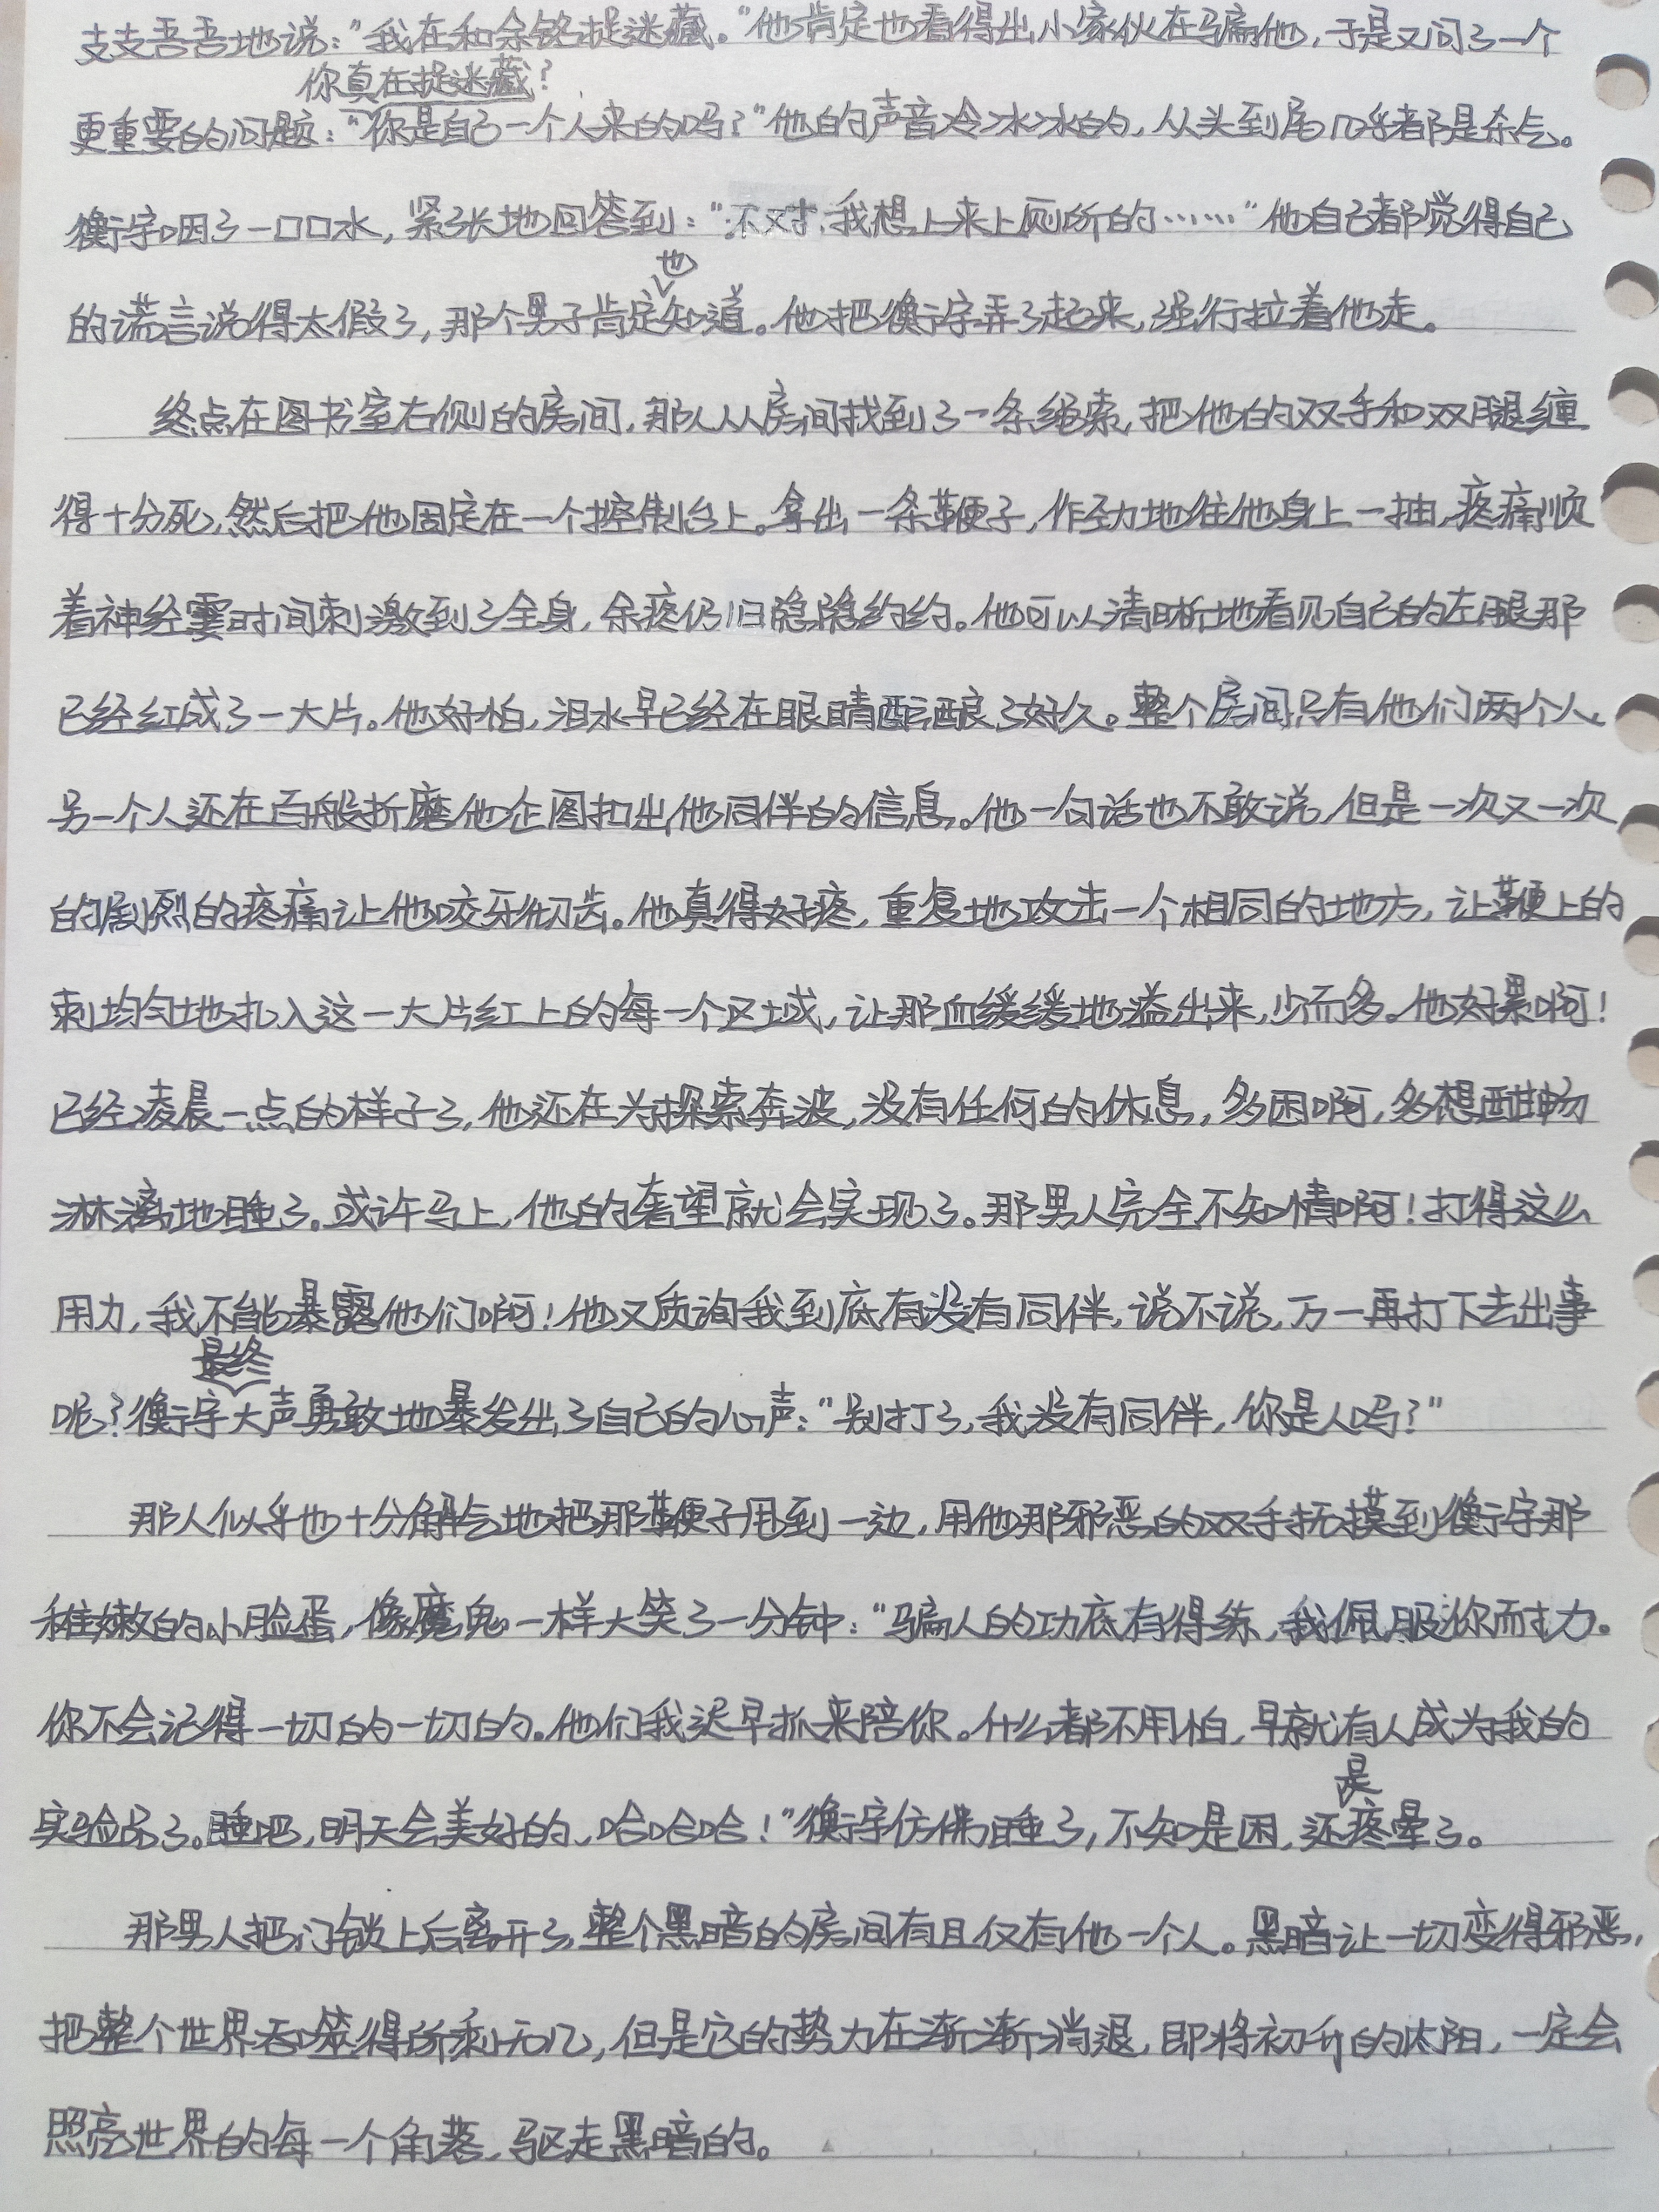 支支吾吾地说：“我在和余铭捉迷藏。”他肯定也看得出小家伙在骗他，于是又问了一个
你真在捉迷藏？
更重要的问题：“你是自己一个人来的吗？”他的声音冷冰冰的，从头到尾几乎都是杀气。
衡宇咽了一口口水，紧张地回答到：“不对，我想上来上厕所的……”他自己都觉得自己
也
的谎言说得太假了，那个男子肯定知道。他把衡宇弄了起来，强行拉着他走。
终点在图书室右侧的房间，那人从房间找到了一条绳索，把他的双手和双腿缠
得十分死，然后把他固定在一个控制台上。拿出一条鞭子，作劲地往他身上一抽，疼痛顺
着神经霎时间刺激到了全身，余疼仍旧隐隐约约。他可以清晰地看见自己的左腿那
已经红成了一大片。他好怕，泪水早已经在眼睛酝酿了好久。整个房间只有他们两个人，
另一个人还在百般折磨他企图扣出他同伴的信息。他一句话也不敢说，但是一次又一次
的剧烈的疼痛让他咬牙切齿。他真得好疼，重复地攻击一个相同的地方，让鞭上的
刺均匀地扎入这一大片红上的每一个区域，让那血缓缓地溢出来，少而多。他好累啊！
已经凌晨一点的样子了，他还在为探索奔波，没有任何的休息，多困啊，多想酣畅
淋漓地睡了。或许马上，他的奢望就会实现了。那男人完全不知情啊！打得这么
用力，我不能暴露他们啊！他又质询我到底有没有同伴，说不说，万一再打下去出事
最终
呢？衡宇大声勇敢地暴发出了自己的心声：“别打了，我没有同伴，你是人吗？”
那人似乎也十分解气地把那鞭子甩到一边，用他那邪恶的双手抚摸到衡宇那
稚嫩的小脸蛋，像魔鬼一样大笑了一分钟：“骗人的功底有得练，我佩服你耐力。
你不会记得一切的一切的。他们我迟早抓来陪你。什么都不用怕，早就有人成为我的
是
实验品了。睡吧，明天会美好的，哈哈哈！”衡宇仿佛睡了，不知是困，还疼晕了。
那男人把门锁上后离开了，整个黑暗的房间有且仅有他一个人。黑暗让一切变得邪恶，
把整个世界吞噬得所剩无几，但是它的势力在渐渐消退，即将初升的太阳，一定会
照亮世界的每一个角落，驱走黑暗的。